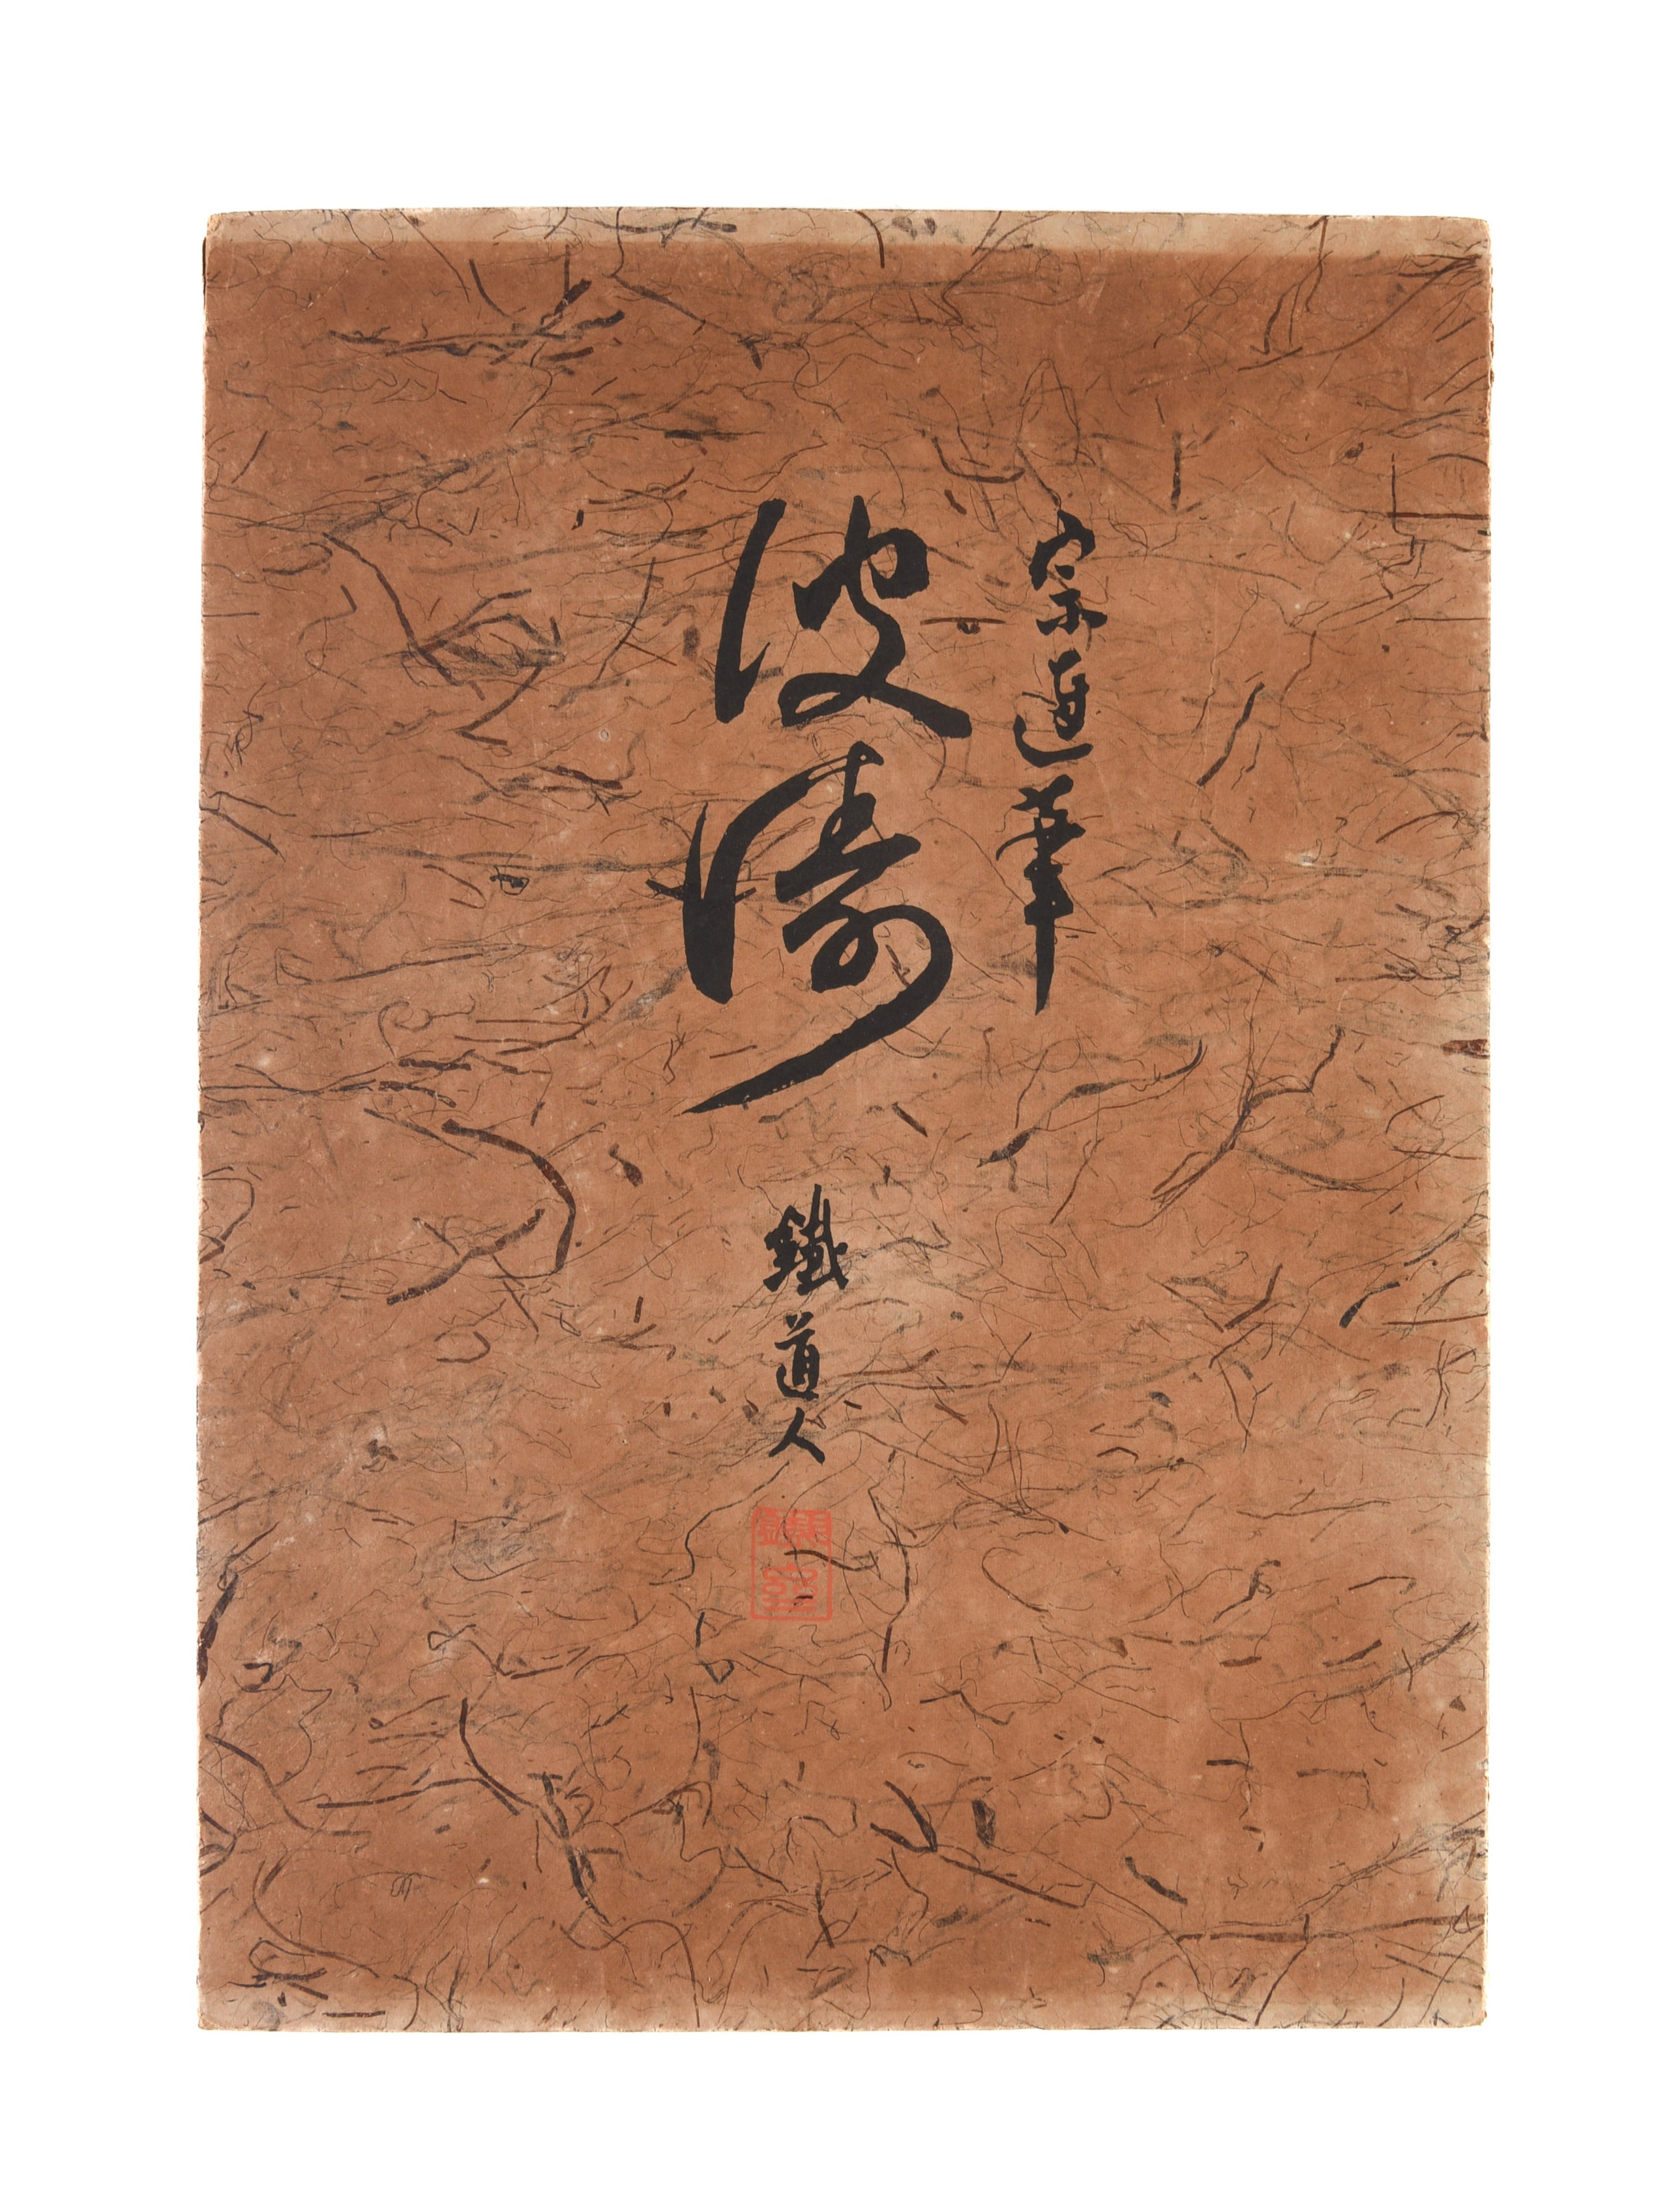 宗達筆
波濤
鐵道人